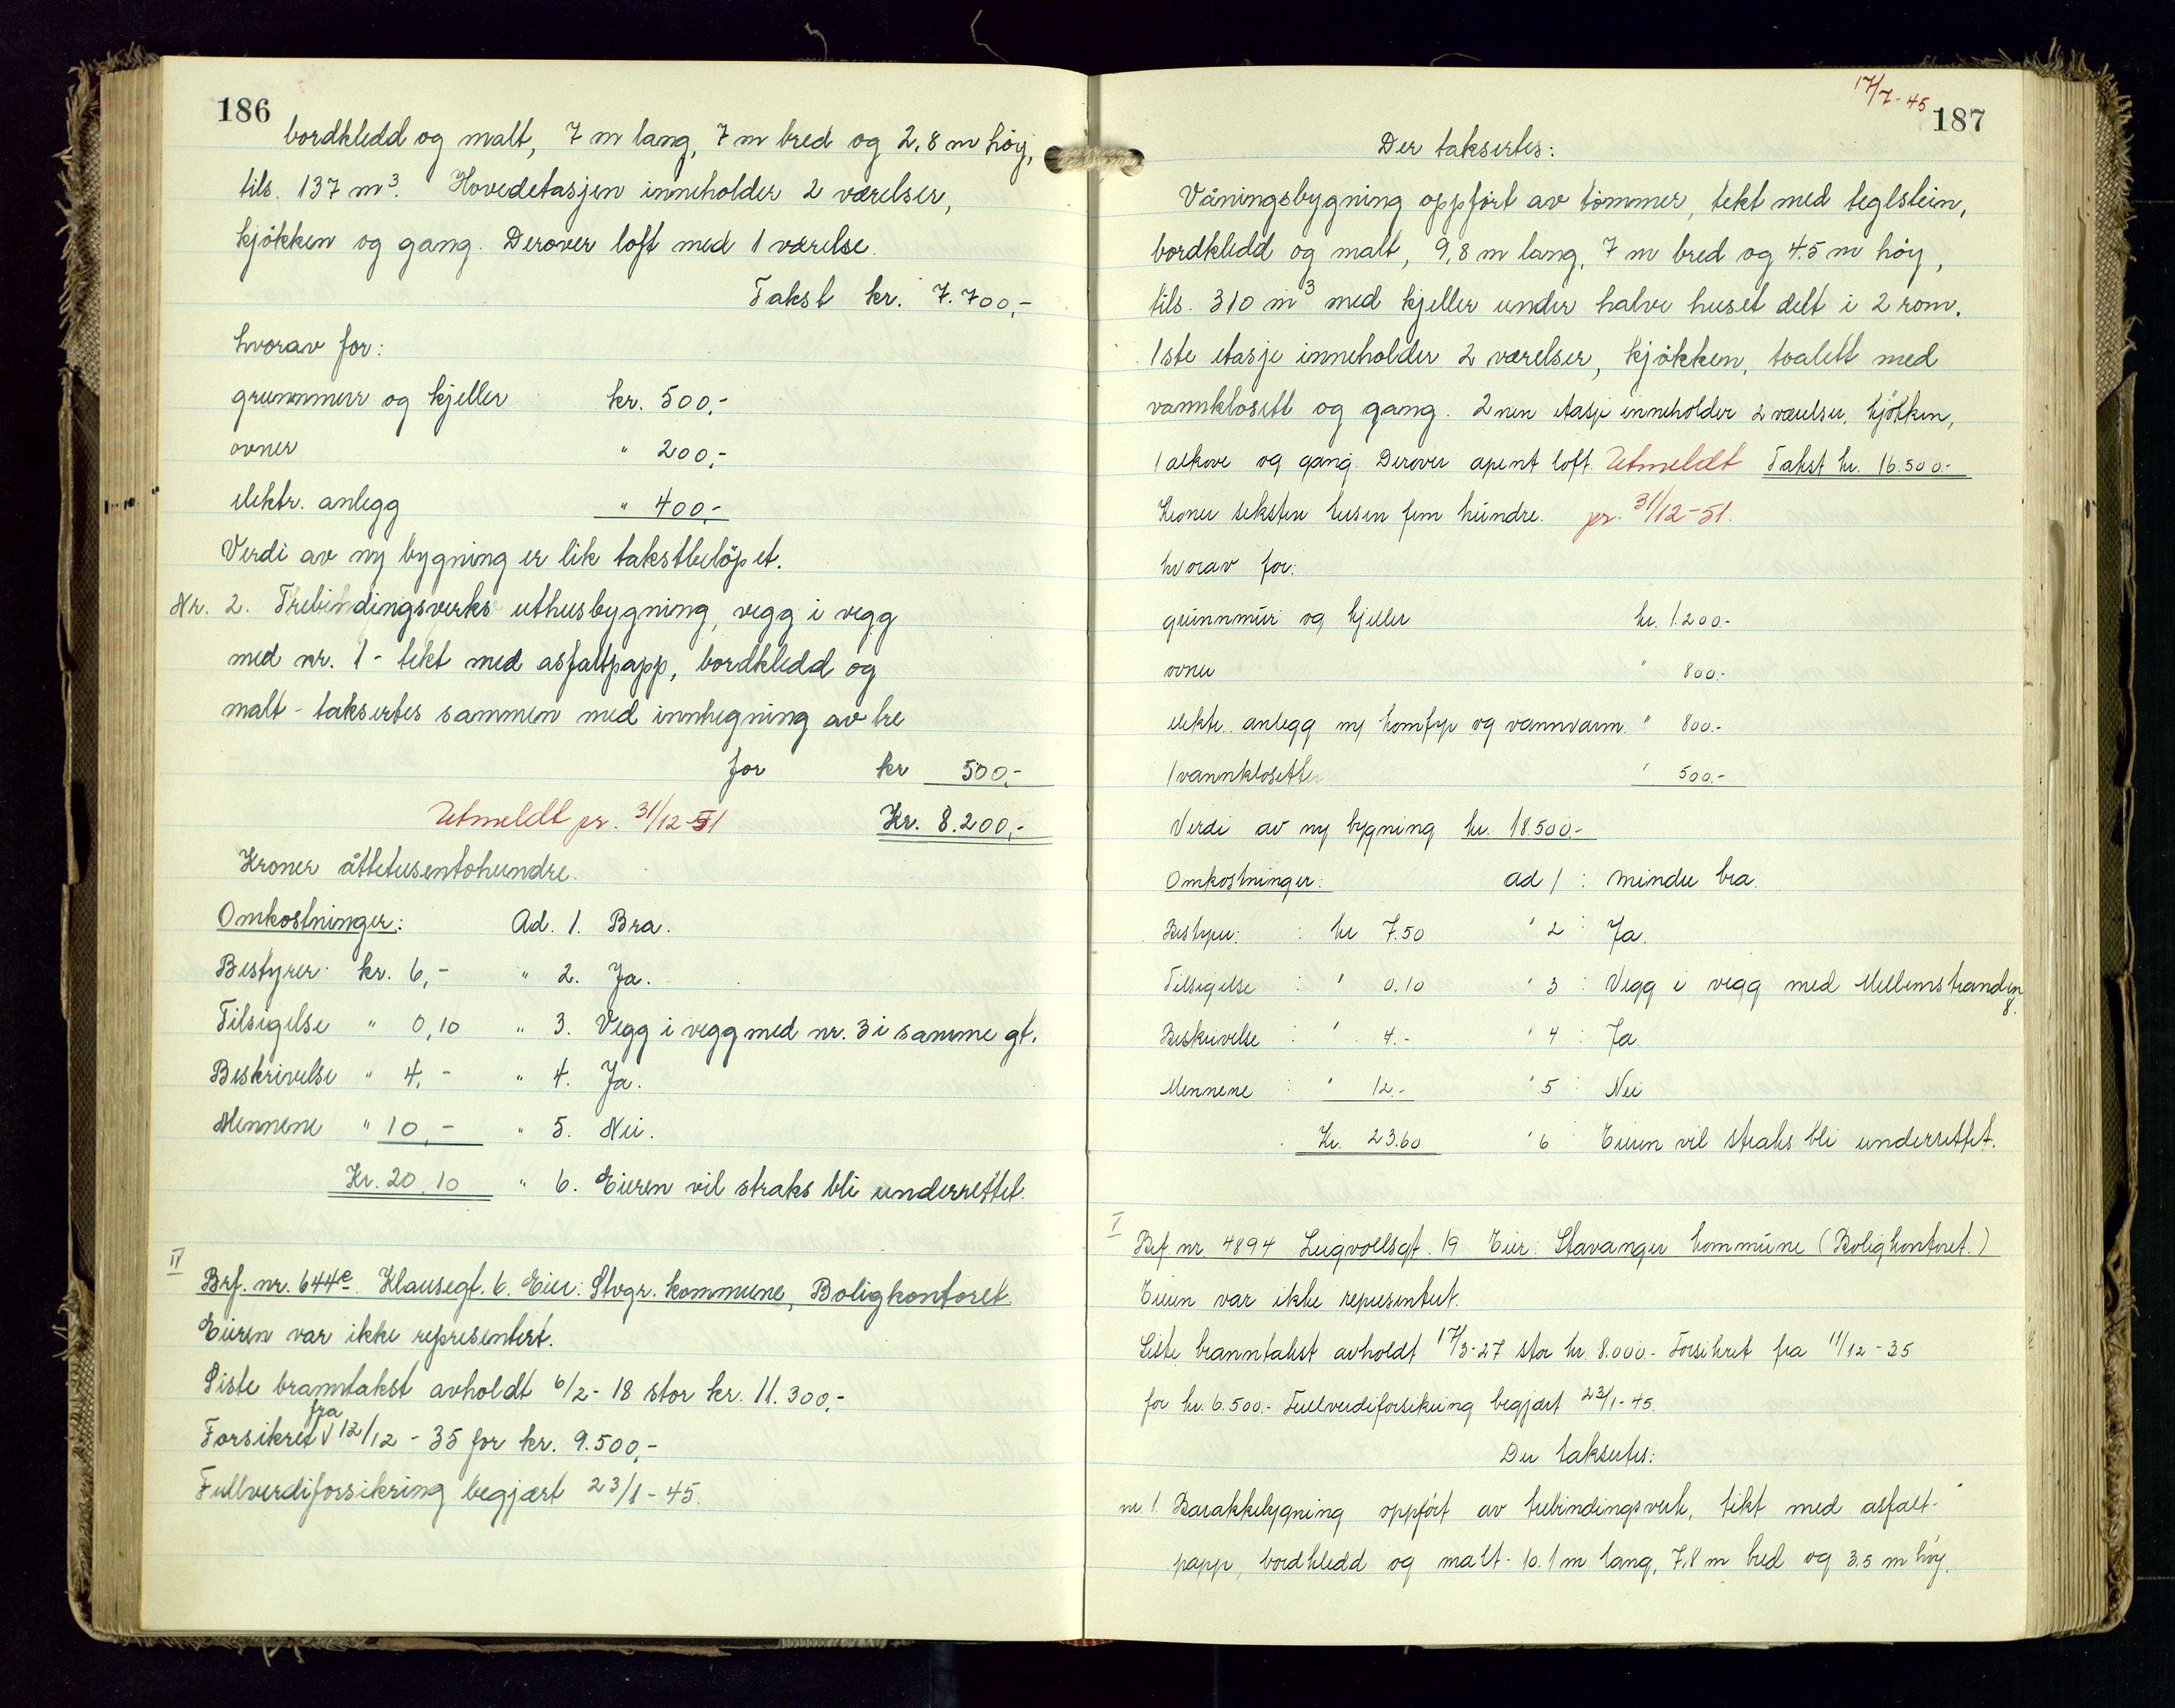 186
bordkledd og malt, 7 m lang, 7 m bred og 2,8 m høy,
tils. 137 m³. Hovedetasjen inneholder 2 værelser,
kjökken og gang. Derover loft med 1 værelse.
Takst kr. 7.700,-
hvorav for:
grunnmur og kjeller kr. 500,-
ovner " 200,-
elektr. anlegg " 400,-
Verdi av ny bygning er lik takstbelöpet.
Nr. 2. Trebindingsverks uthusbygning, vegg i vegg
med nr. 1 - tekt med asfaltpapp, bordkledd og
malt - taksertes sammen med innhegning av tre
for kr 500,-
Utmeldt pr. 31/12-51 Kr. 8.200,-
Kroner åttetusentohundre.
Omkostninger: Ad. 1. Bra.
Bestyrer kr. 6,- " 2. Ja.
Tilsigelse " 0,10 " 3. Vegg i vegg med nr. 3 i samme gt.
Beskrivelse " 4,- " 4. Ja.
Mennene " 10,- " 5. Nei.
Kr. 20,10 " 6. Eieren vil straks bli underrettet.
IV
Brf. nr. 644e. Klausegt. 6. Eier: Stvgr. kommune, Boligkontoret
Eieren var ikke representert.
Siste branntakst avholdt 6/2-18 stor kr. 11.300,-
Forsikret fra 12/12-35 for kr. 9.500,-
Fullverdiforsikring begjært 23/1-45.
17/7-45 187
Der taksertes:
Våningsbygning oppfört av tömmer, tekt med teglstein,
bordkledd og malt, 9,8 m lang, 7 m bred og 4.5 m höy,
tils. 310 m³ med kjeller under halve huset delt i 2 rom.
1ste etasje inneholder 2 værelser, kjökken, toalett med
vannklosett og gang. 2nen etasje inneholder 2 værelser, kjökken,
1 alkove og gang. Derover åpent loft. Utmeldt Takst kr. 16.500.-
Kroner seksten tusen fem hundre. pr. 31/12-51.
hvorav for:
grunnmur og kjeller kr. 1.200.-
ovner " 800.-
elektr. anlegg ny komfyr og vannvarm. " 800.-
1 vannklosett " 500.-
Verdi av ny bygning kr. 18.500.-
Omkostninger: ad 1 : mindre bra.
Bestyrer: : kr 7.50 " 2 : Ja.
Tilsigelse : " 0.10 " 3 : Vegg i vegg med Mellemstranden
8.
Beskrivelse : " 4.- " 4 : Ja
Mennene : " 12.- " 5 : Nei
Kr. 23.60 " 6 Eieren vil straks bli underrettet.
V
Brf. nr. 4894 Leigvollsgt. 19 Eier: Stavanger kommune (Boligkontoret.)
Eieren var ikke representert.
Siste branntakst avholdt 17/3-27 stor kr. 8.000.- Forsikret fra 11/12-35
for kr. 6.500.- Fullverdiforsikring begjært 23/1-45.
Der taksertes:
nr. 1. Barakkebygning oppfört av trebindingsverk, tekt med asfalt-
papp, bordkledd og malt - 10.1 m lang, 7,8 m bred og 3.5 m höy.